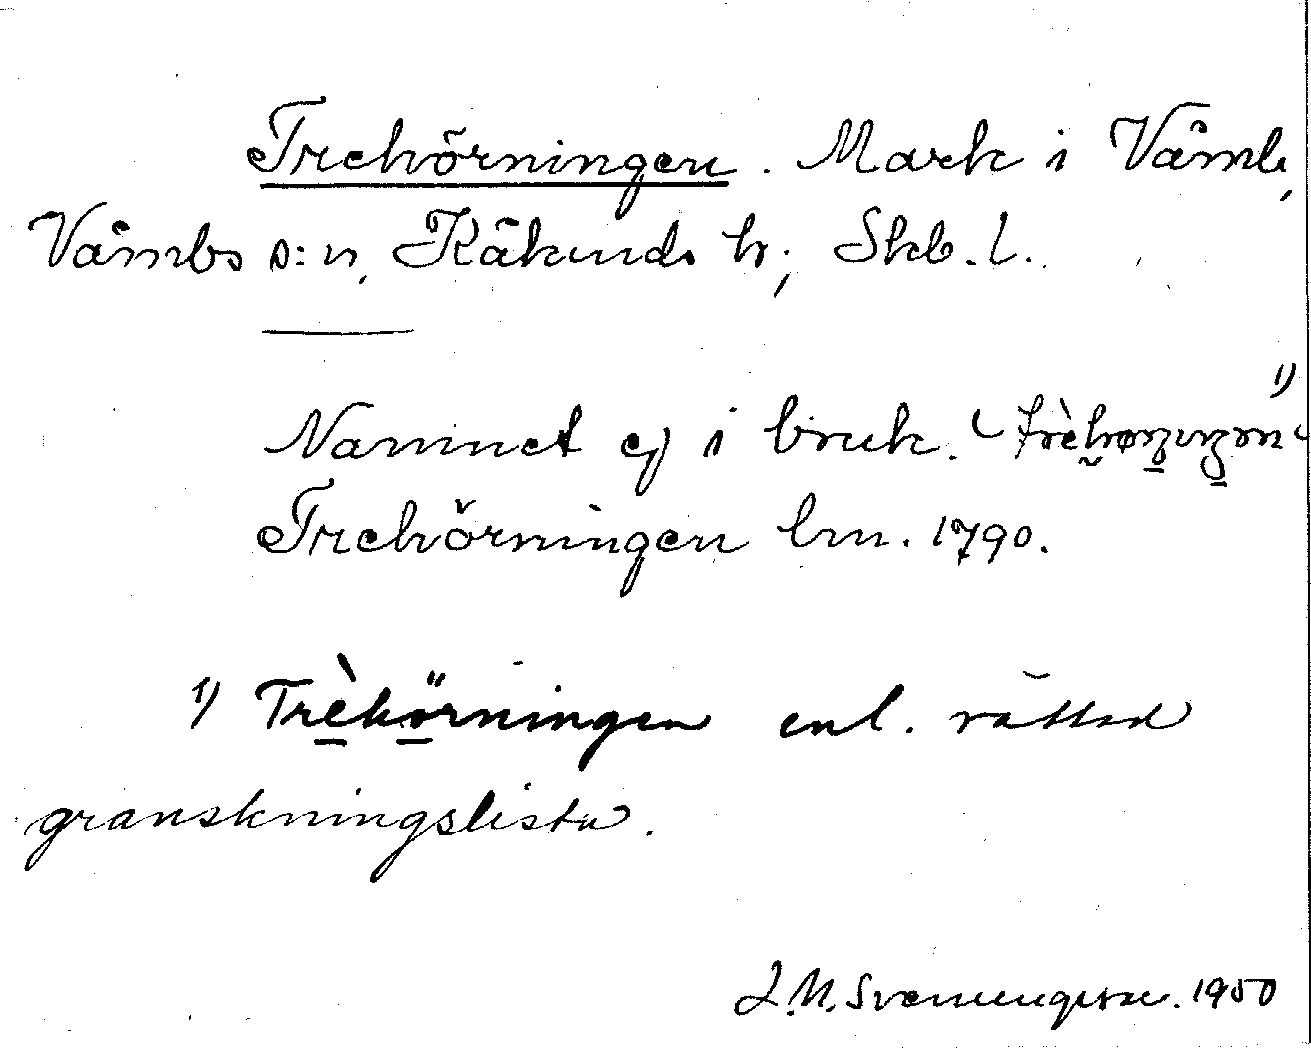 Trehörningen. Mark i Våmb,
Våmbs s:n, Kåkinds h; Skb. l.
Namnet ej i bruk.
Trehörningen lm. 1790.
1) Trèhörningen enl. rättad
granskningslista.
J.N. Svanungsson. 1950